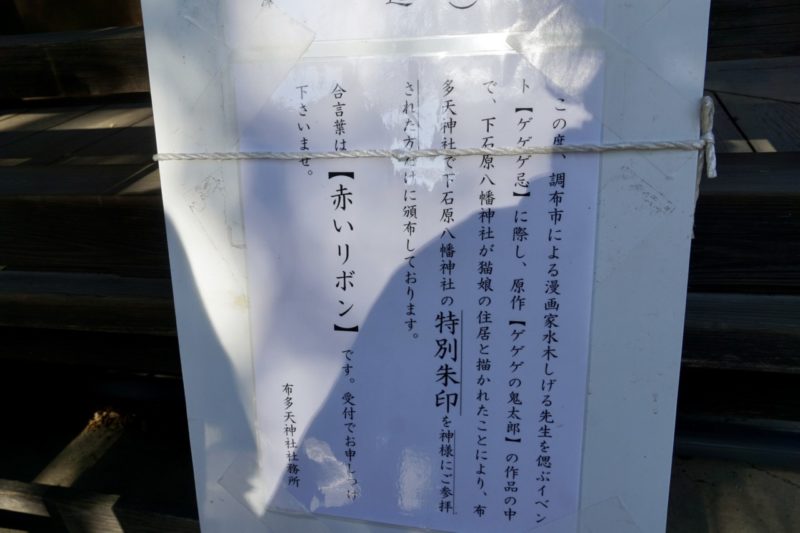 この度、調布市による漫画家水木しげる先生を偲ぶイベン
ト【ゲゲゲ忌】に際し、原作【ゲゲゲの鬼太郎】の作品の中
で、下石原八幡神社が猫娘の住居と描かれたことにより、布
多天神社で下石原八幡神社の特別朱印を神様にご参拝
された方だけに頒布しております。
合言葉は【赤いリボン】です。受付でお申しつけ
下さいませ。
布多天神社社務所